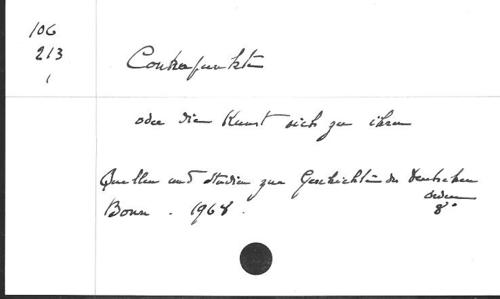 106
213
1
Contrapunkte
oder die Kunst sich zu
Quellen und Studien zur Geschichte des Deutschen
Orden
Bonn. 1968. 8°